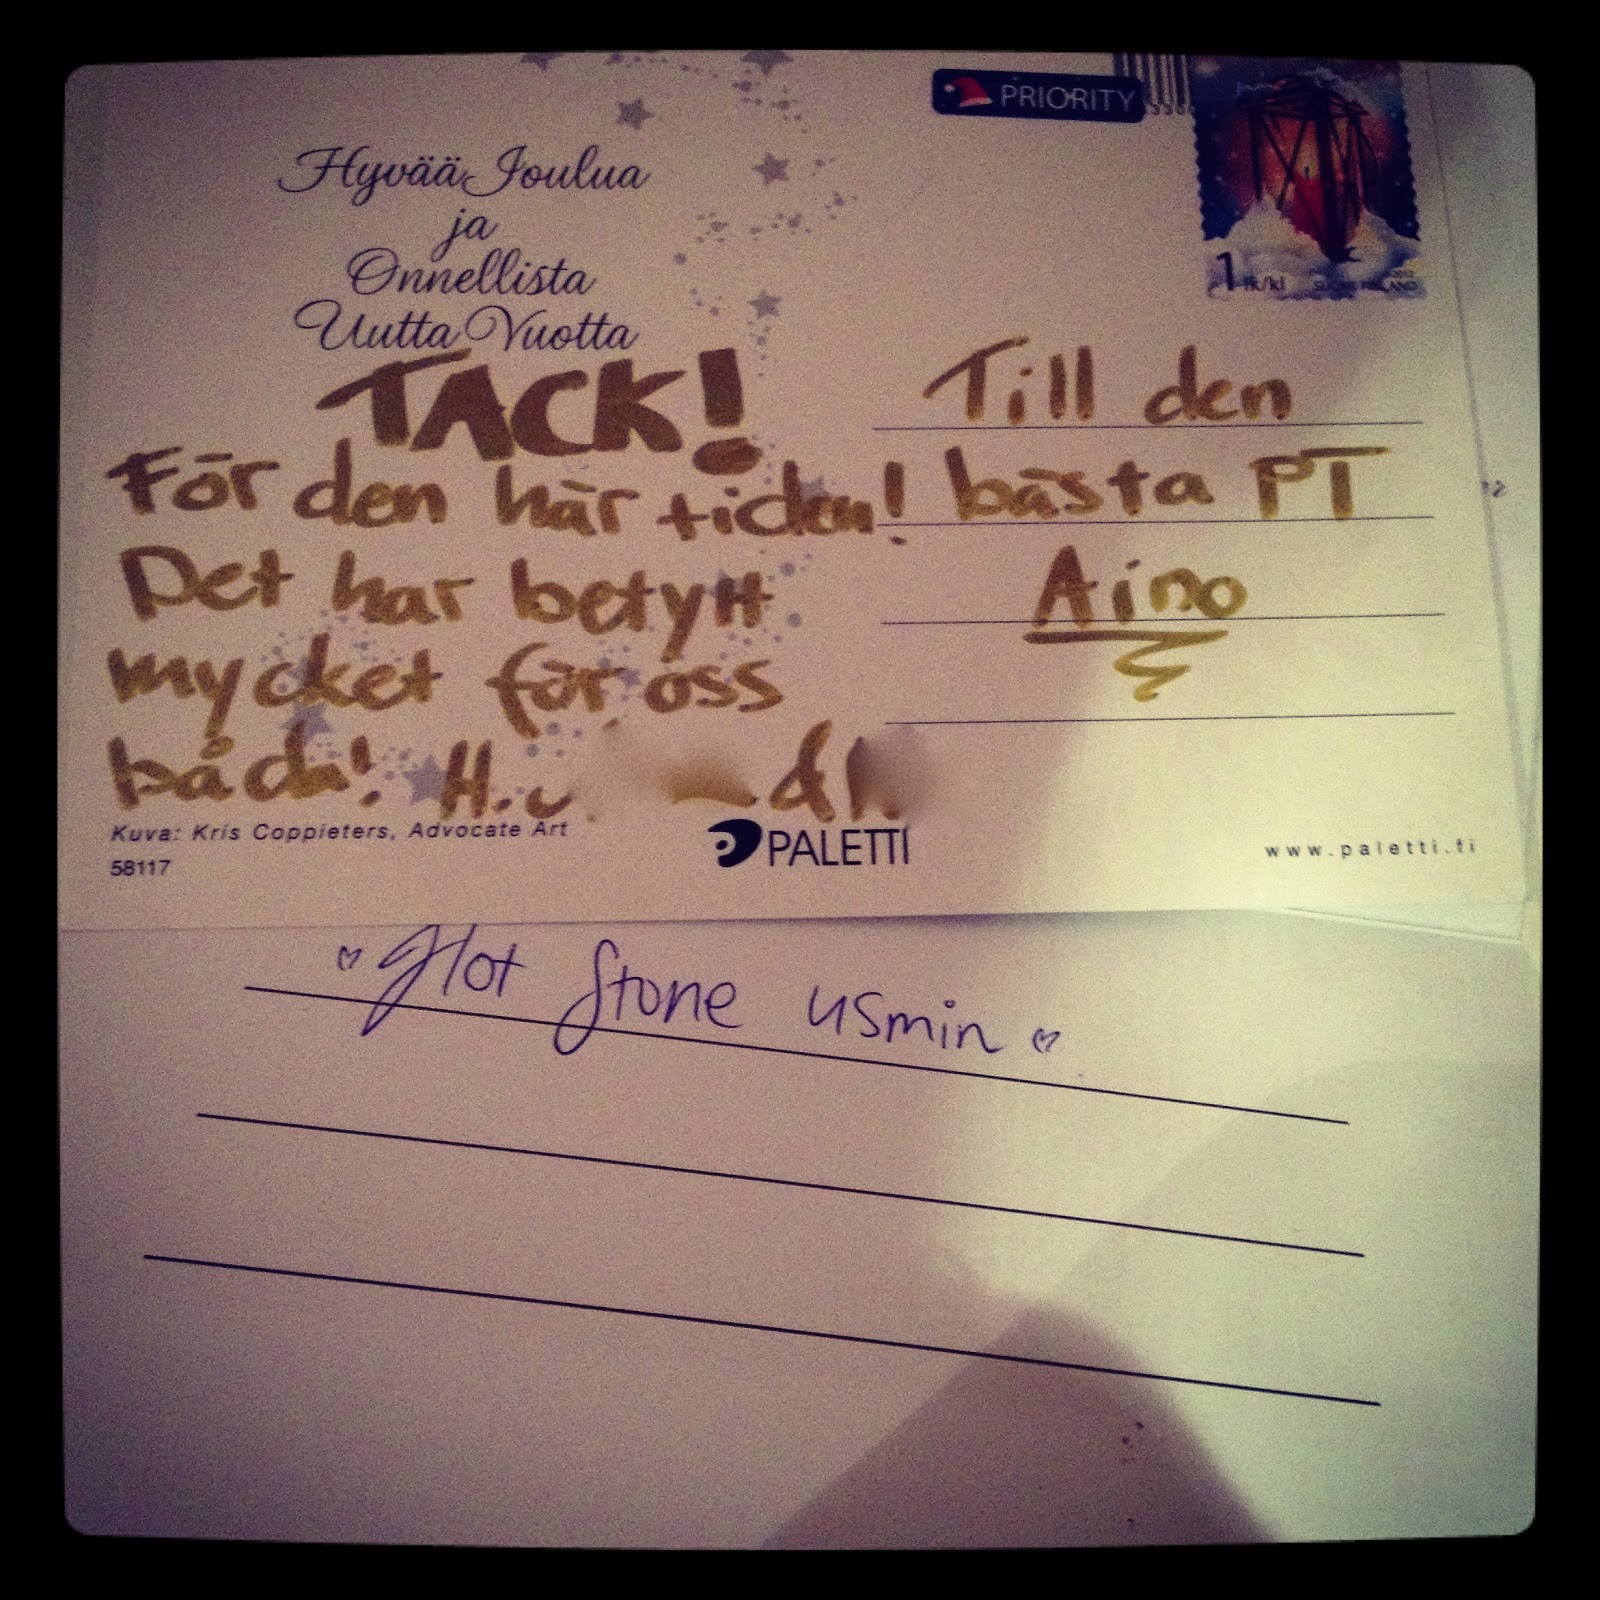 PRIORITY
Hyvää Joulua
ja
Onnellista
Uutta Vuotta
1 lk/kl
2012
SUOMI FINLAND
TACK!
För den här tiden!
Det har betytt
mycket för oss
båda! H.
&
Till den
bästa PT
Aino
Kuva: Kris Coppieters, Advocate Art
58117
PALETTI
www.paletti.fi
Hot Stone usmin